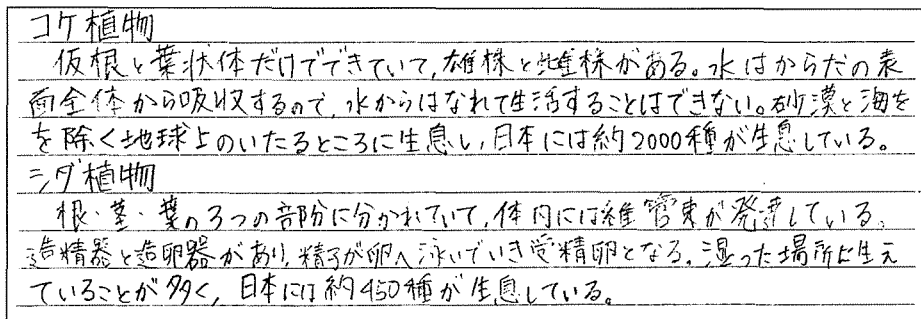 コケ植物
仮根と葉状体だけでできていて,雄株と雌株がある。水はからだの表
面全体から吸収するので,水からはなれて生活することはできない。砂漠と海を
を除く地球上のいたるところに生息し,日本には約2000種が生息している。
シダ植物
根・茎・葉の3つの部分に分かれていて,体内には維管束が発達している。
造精器と造卵器があり,精子が卵へ泳いでいき受精卵となる。湿った場所に生え
ていることが多く,日本には約450種が生息している。